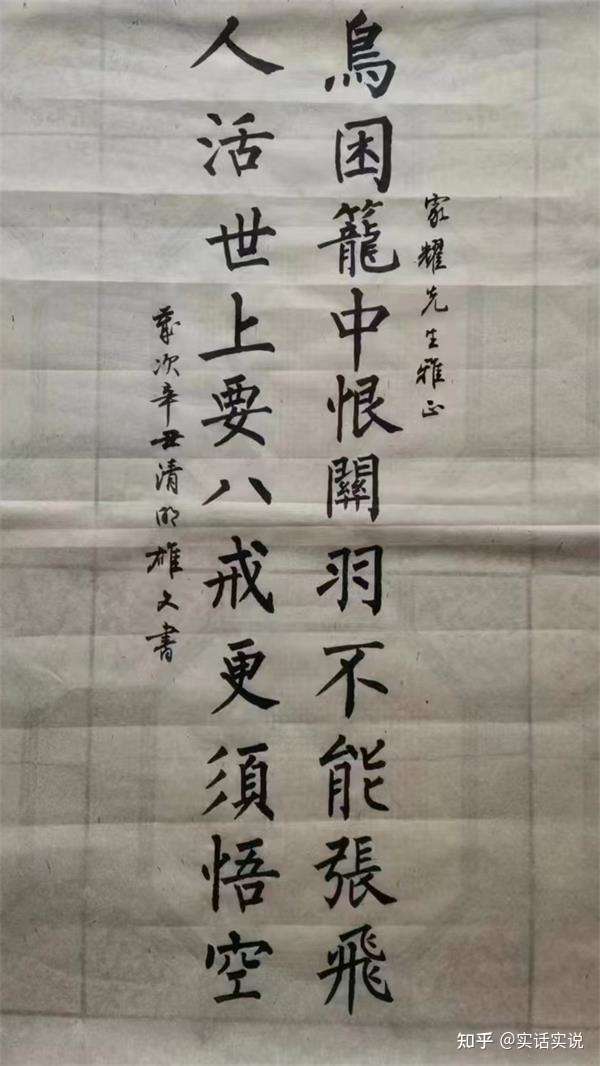 家耀先生雅正
鳥困籠中恨關羽不能張飛
人活世上要八戒更須悟空
歲次辛丑清明雄文書
知乎 @实话实说